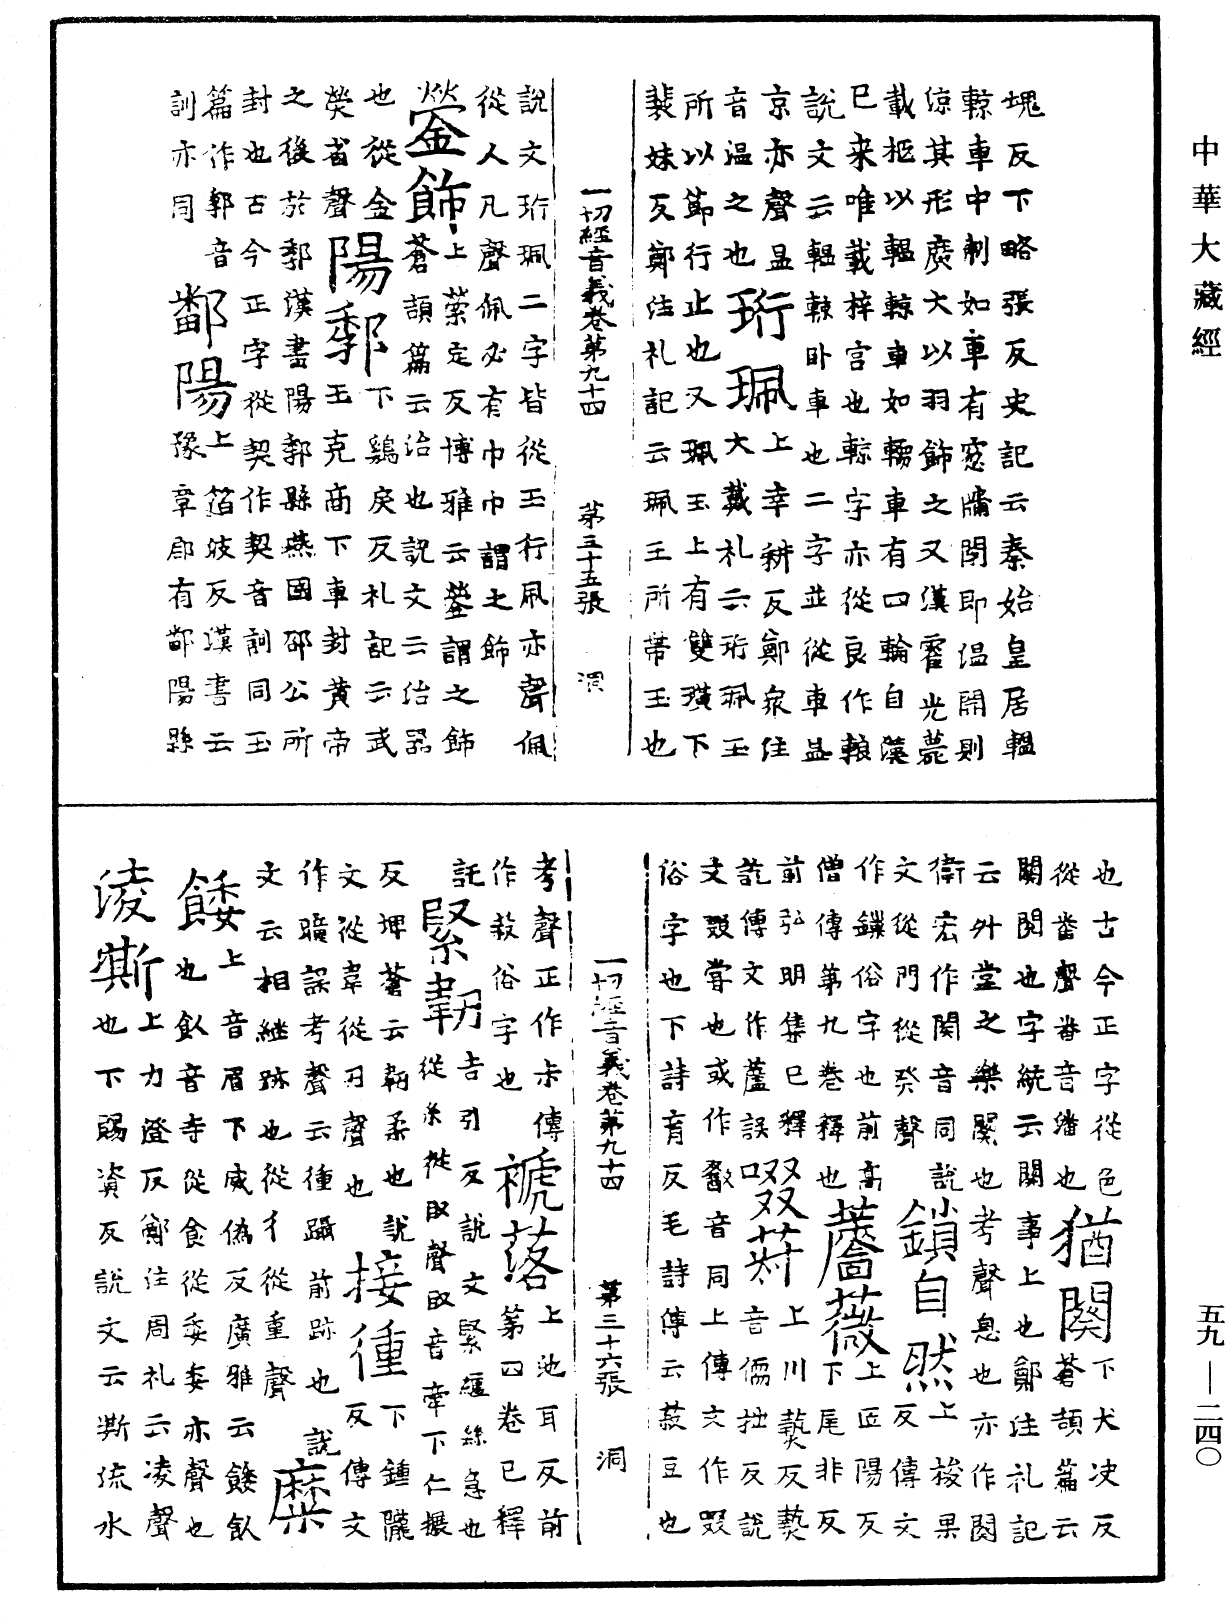 中華大藏經
塊反下略張反史記云秦始皇居轀
輬車中制如車有窓牖閇即温開則
涼其形廣大以羽飾之又漢霍光薨
載柩以轀輬車如轜車有四輪自漢
已来唯載梓宫也輬字亦從良作䡙
說文云轀輬卧車也二字並從車昷
京亦聲昷音温之也
珩珮上幸耕反鄭衆注
大戴礼云珩珮玉
所以節行止也又珮玉上有雙璜下
裴妹反鄭注礼記云珮王所帶玉也
一切經音義卷第九十四 第三十五張 洞
說文珩珮二字皆從玉行凧亦聲佩
從人凡聲佩必有巾巾謂之飾
鎣飾上縈定反博雅云鎣謂之飾
蒼頡篇云治也說文云治器
也從金熒省聲
陽鄡下鷄戾反礼記云武
王克商下車封黄帝
之後於鄡漢書陽鄡縣燕國邵公所
封也古今正字從契作契音訓同玉
篇作鄡音訓亦同
鄱陽上笛皮反漢書云
豫章郡有鄱陽縣
也古今正字從邑
從番聲番音潘也
猶闋下犬決反
蒼頡篇云
闋閱也字統云闋事上也鄭注礼記
云外堂之樂闋也考聲息也亦作闋
衛宏作闋音同說
文從門從癸聲
鎖自然上梭果
反傳文
作鏁俗字也前高
僧傳第九卷釋也
薔薇上匠陽反
下尾非反
前弘明集已釋
說傳文作蘆誤
啜菽上川爇反爇
音儒拙反說
文啜甞也或作歠音同上傳文作啜
俗字也下詩育反毛詩傳云菽豆也
一切經音義卷第九十四 第三十六張 洞
考聲正作尗傳
作菽俗字也
褫落上池耳反前
第四卷已釋
訖
緊韌吉引反說文緊纏絲急也
從糸從臤聲臤音牽下仁振
反埤蒼云韌柔也說
文從韋從刃聲也
接種下鍾隴
反傳文
作曠誤考聲云種躡前跡也說
文云相継跡也從彳從重聲
糜
餧上音眉下威偽反廣雅云餧飤
也飤音寺從食從委委亦聲也
淩澌上力澄反鄭注周礼云凌聲
也下賜資反說文云澌流水
五九—二四〇